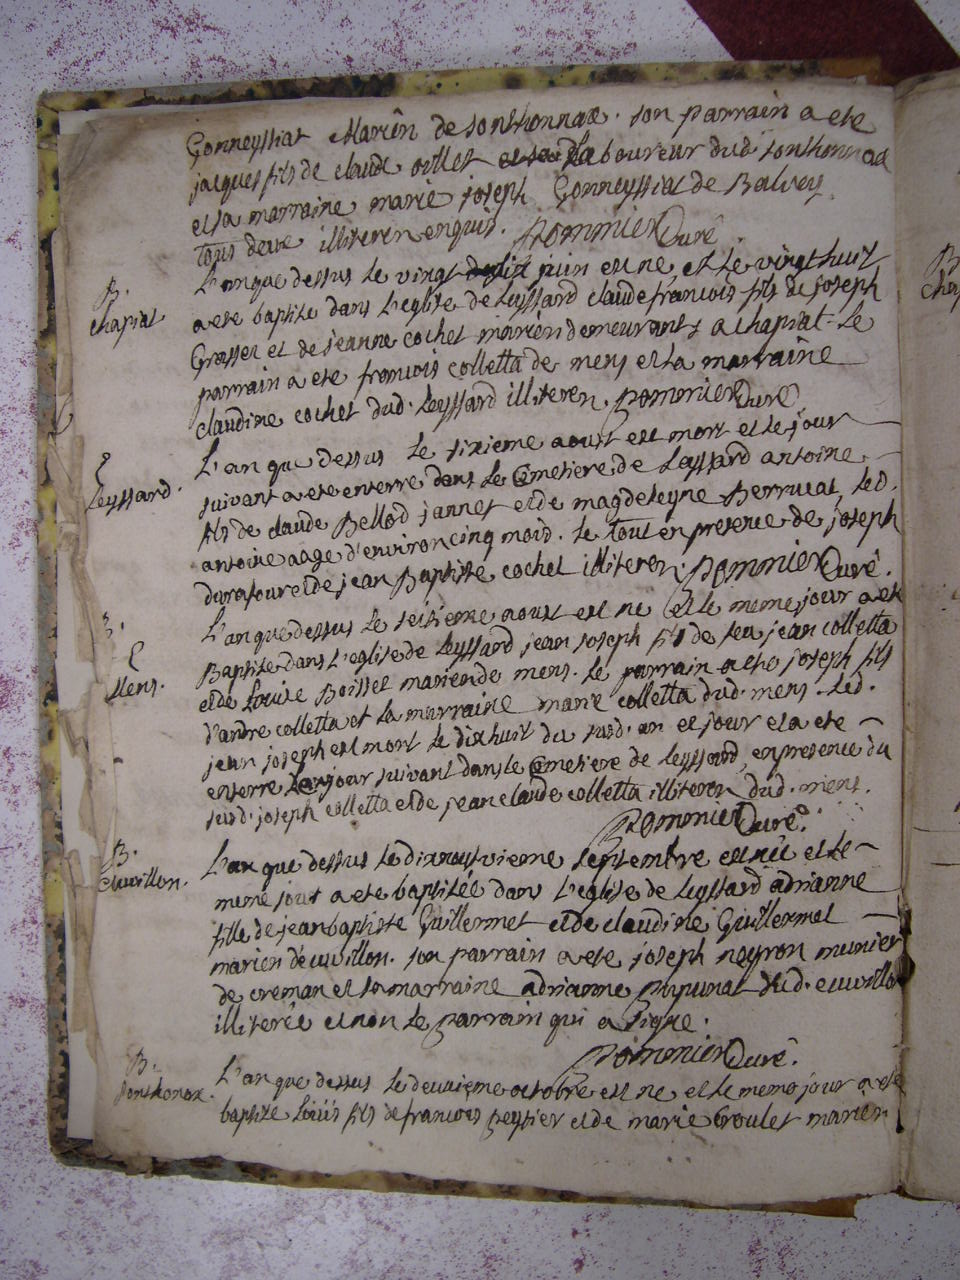 Gonneyssiat Mariên de sonthonnax. son parrain a ete
jacques fils de claude oillet laboureur dud. sonthonnax
et sa marraine marie joseph Gonneyssiat de Balvey.
tous deux illiteren enquis. Pommier Curê
B.
chapiat
L'an que dessus le vingt juin est ne et le vingt huit
a ete baptise dans l'eglise de Leyssard claude francois fils de joseph
Grosset et de jeanne cochet mariên demeurants a chapiat. Le
parrain a ete francois colletta de mens et la marraine
claudine cochet dud. Leyssard illiteren. Pommier Curê
Leyssard.
L'an que dessus le sixieme aoust est mort et le jour
suivant a ete enterre dans le Cemetiere de Leyssard antoine
fils de claude Bellod jannet et de magdeleyne Berrucat, led.
antoine aage d'environ cinq mois. le tout en presence de joseph
durafour et de jean Baptiste cochet illiteren. Pommier Curê.
B.
Mens.
L'an que dessus le seisieme aoust est ne et le meme jour a ete
Baptise dans l'eglise de Leyssard jean joseph fils de feu jean colletta
et de Louise Boisset marien de mens. le parrain a ete joseph fils
d'andre colletta et la marraine marie colletta dud. mens. led.
jean joseph est mort le dixhuit du susd. an et jour et a ete
enterre jour suivant dans le Cemetiere de Leyssard, en presence du
susd. joseph colletta et de jean claude colletta illiteren dud. mens.
Pommier Curê.
B.
cuvillon.
L'an que dessus le dixneuvieme septembre est nèe et le
meme jour a ete baptisèe dans l'eglise de Leyssard adrianne
fille de jean baptiste Guillermet et de claudine Guillermet
marien de cuvillon. son parrain a ete joseph neyron munier
de creman et sa marraine adrianne dud. cuvillon
illiterèe et non le parrain qui a signe.
Pommier Curê.
B.
sonthonax.
L'an que dessus le deuxieme octobre est ne et le meme jour a ete
baptise Loüis fils de francois et de marie marien